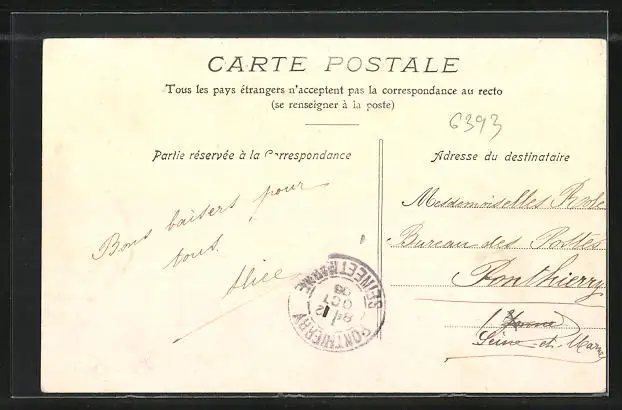 CARTE POSTALE
Tous les pays étrangers n'acceptent pas la correspondance au recto
(se renseigner à la poste)
6393
Partie réservée à la Correspondance
Adresse du destinataire
Bons baisers pour
tous.
Alice
Mesdemoiselles
Bureau des Postes
Ponthierry
(Yonne)
Seine-et-Marne
PONTHIERRY
SEINE ET MARNE
OCT